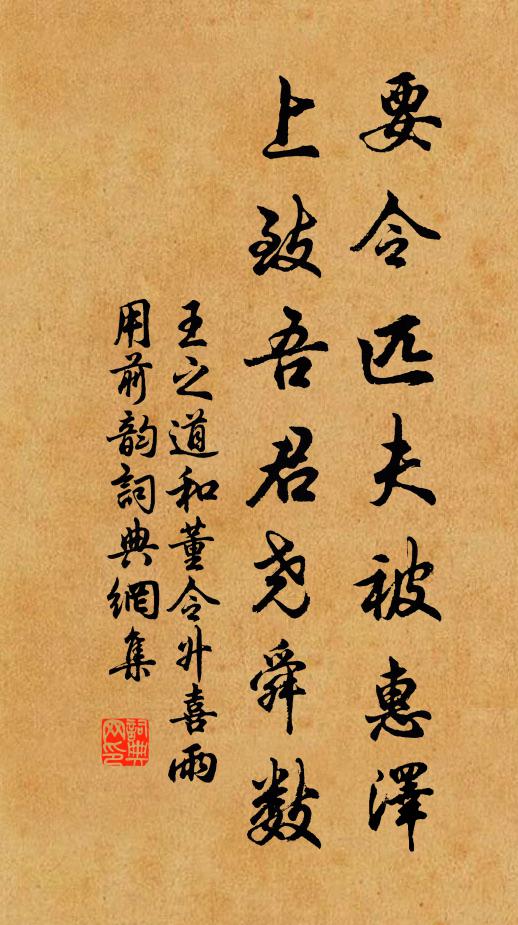 要令匹夫被惠澤
上致吾君尧舜數
王之道和董令升喜雨
用前韵詞典網集
詞典
网印